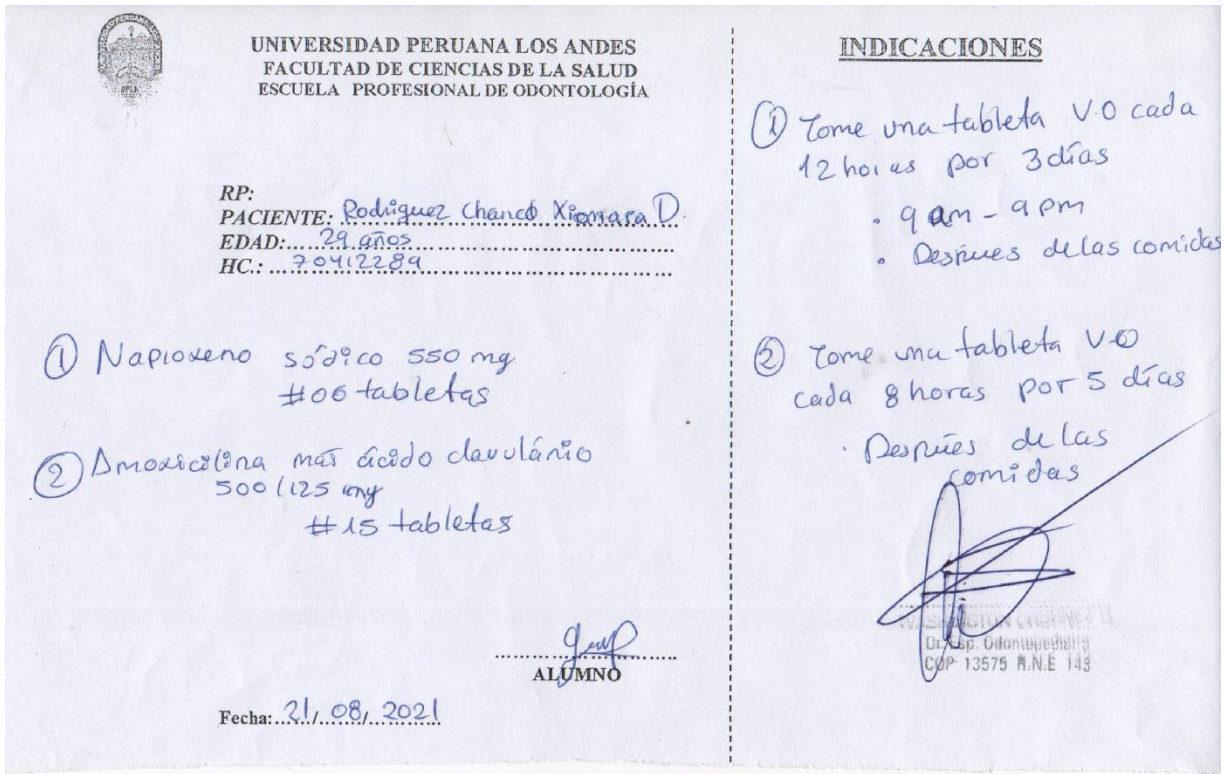 UNIVERSIDAD PERUANA LOS ANDES
FACULTAD DE CIENCIAS DE LA SALUD
ESCUELA PROFESIONAL DE ODONTOLOGÍA
UPLA
RP:
PACIENTE: Rodriguez Chancó Xiomara D.
EDAD: 29 años
HC.: 70412289
① Naproxeno sódico 550 mg
#06 tabletas
② Amoxicilina mas ácido clavulánio
500/125 mg
#15 tabletas
ALUMNO
Fecha: 21/08/2021
INDICACIONES
① Tome una tableta V.O cada
12 horas por 3 días
• 9 am - 9 pm
• Despues de las comidas
② Tome una tableta V.O
cada 8 horas por 5 días
• Despúes de las
comidas
WASHINGTON
Dr. Esp. Odontopediatría
COP 13575 R.N.E 143